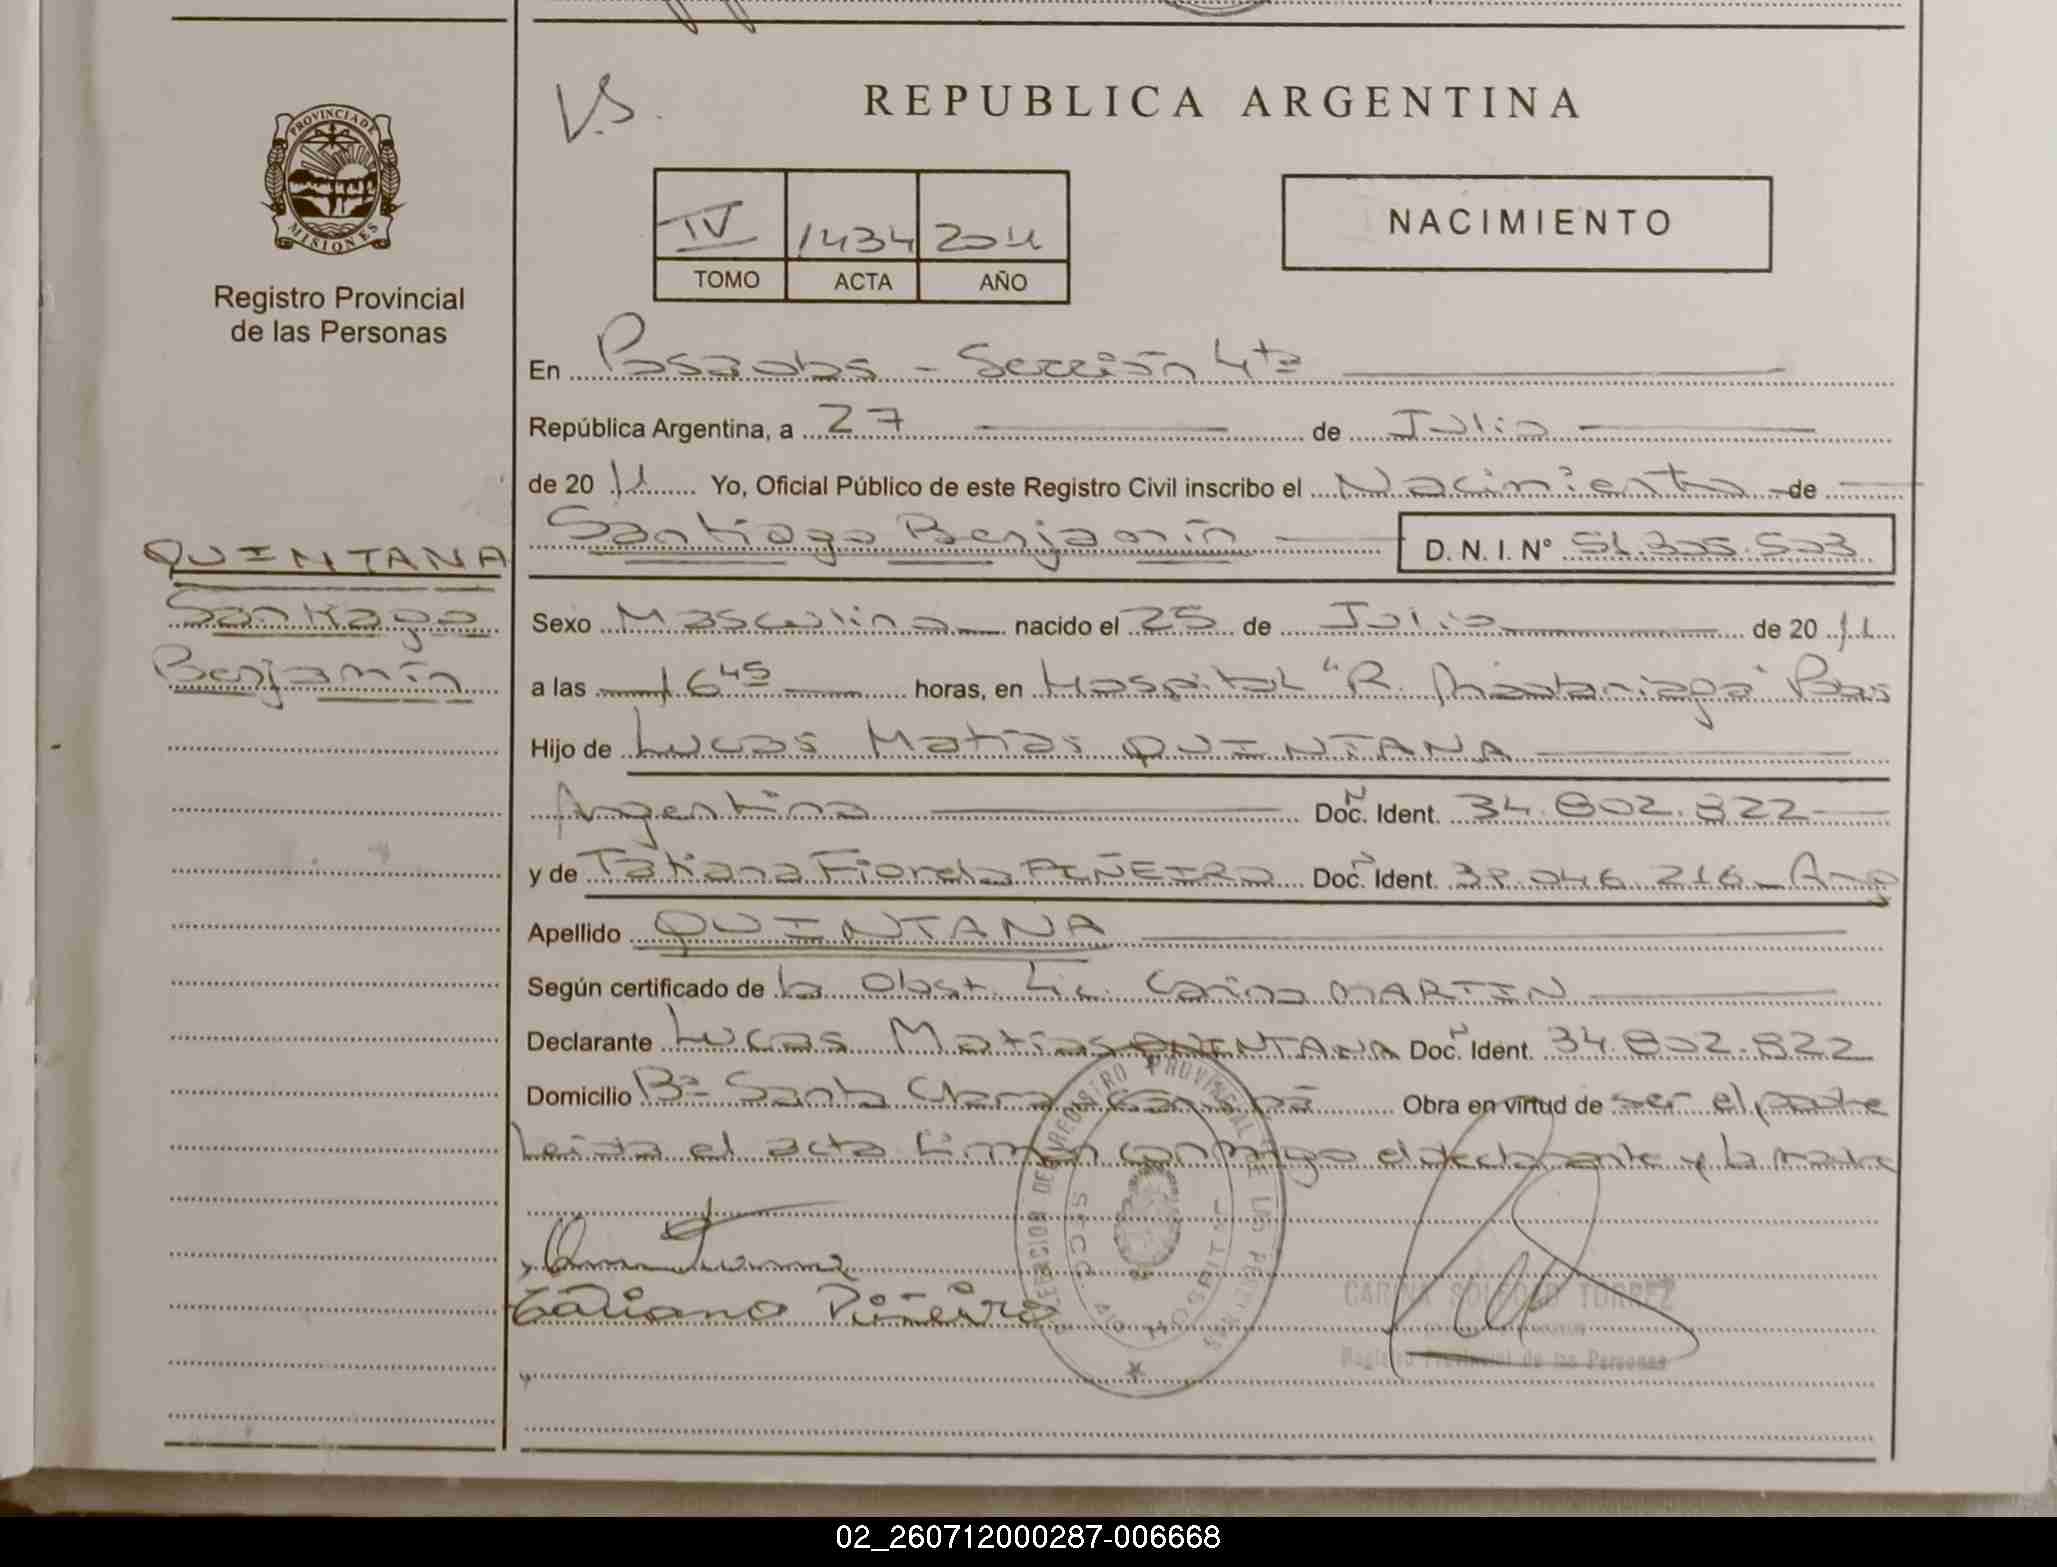 PROVINCIA DE
MISIONES
Registro Provincial
de las Personas
QUINTANA
Santiago
Benjamín
V.S.
REPUBLICA ARGENTINA
IV 1434 2011
TOMO ACTA AÑO
NACIMIENTO
En Posadas - Sección 4ta
República Argentina, a 27 de Julio
de 20 11 Yo, Oficial Público de este Registro Civil inscribo el Nacimiento de
Santiago Benjamín D. N. I. N° 51.305.503
Sexo Masculino nacido el 25 de Julio de 20 11
a las 16 45 horas, en Hospital "R. Madariaga" Pdas
Hijo de Lucas Matías QUINTANA
Argentino Doc. Ident. 34.802.822
y de Tatiana Fiorela PIÑEIRO Doc. Ident. 38.046.216 - Arg
Apellido QUINTANA
Según certificado de la Obst. Lic. Carina MARTIN
Declarante Lucas Matías QUINTANA Doc. Ident. 34.802.822
Domicilio B° Santa Clara Obra en virtud de ser el padre
Leída el acta firman conmigo el declarante y la madre
Tatiana Piñeiro
REGISTRO PROVINCIAL DE LAS PERSONAS
SECC 4ta HOSPITAL
CARINA SOLEDAD TORREZ
Registro Provincial de las Personas
02_260712000287-006668